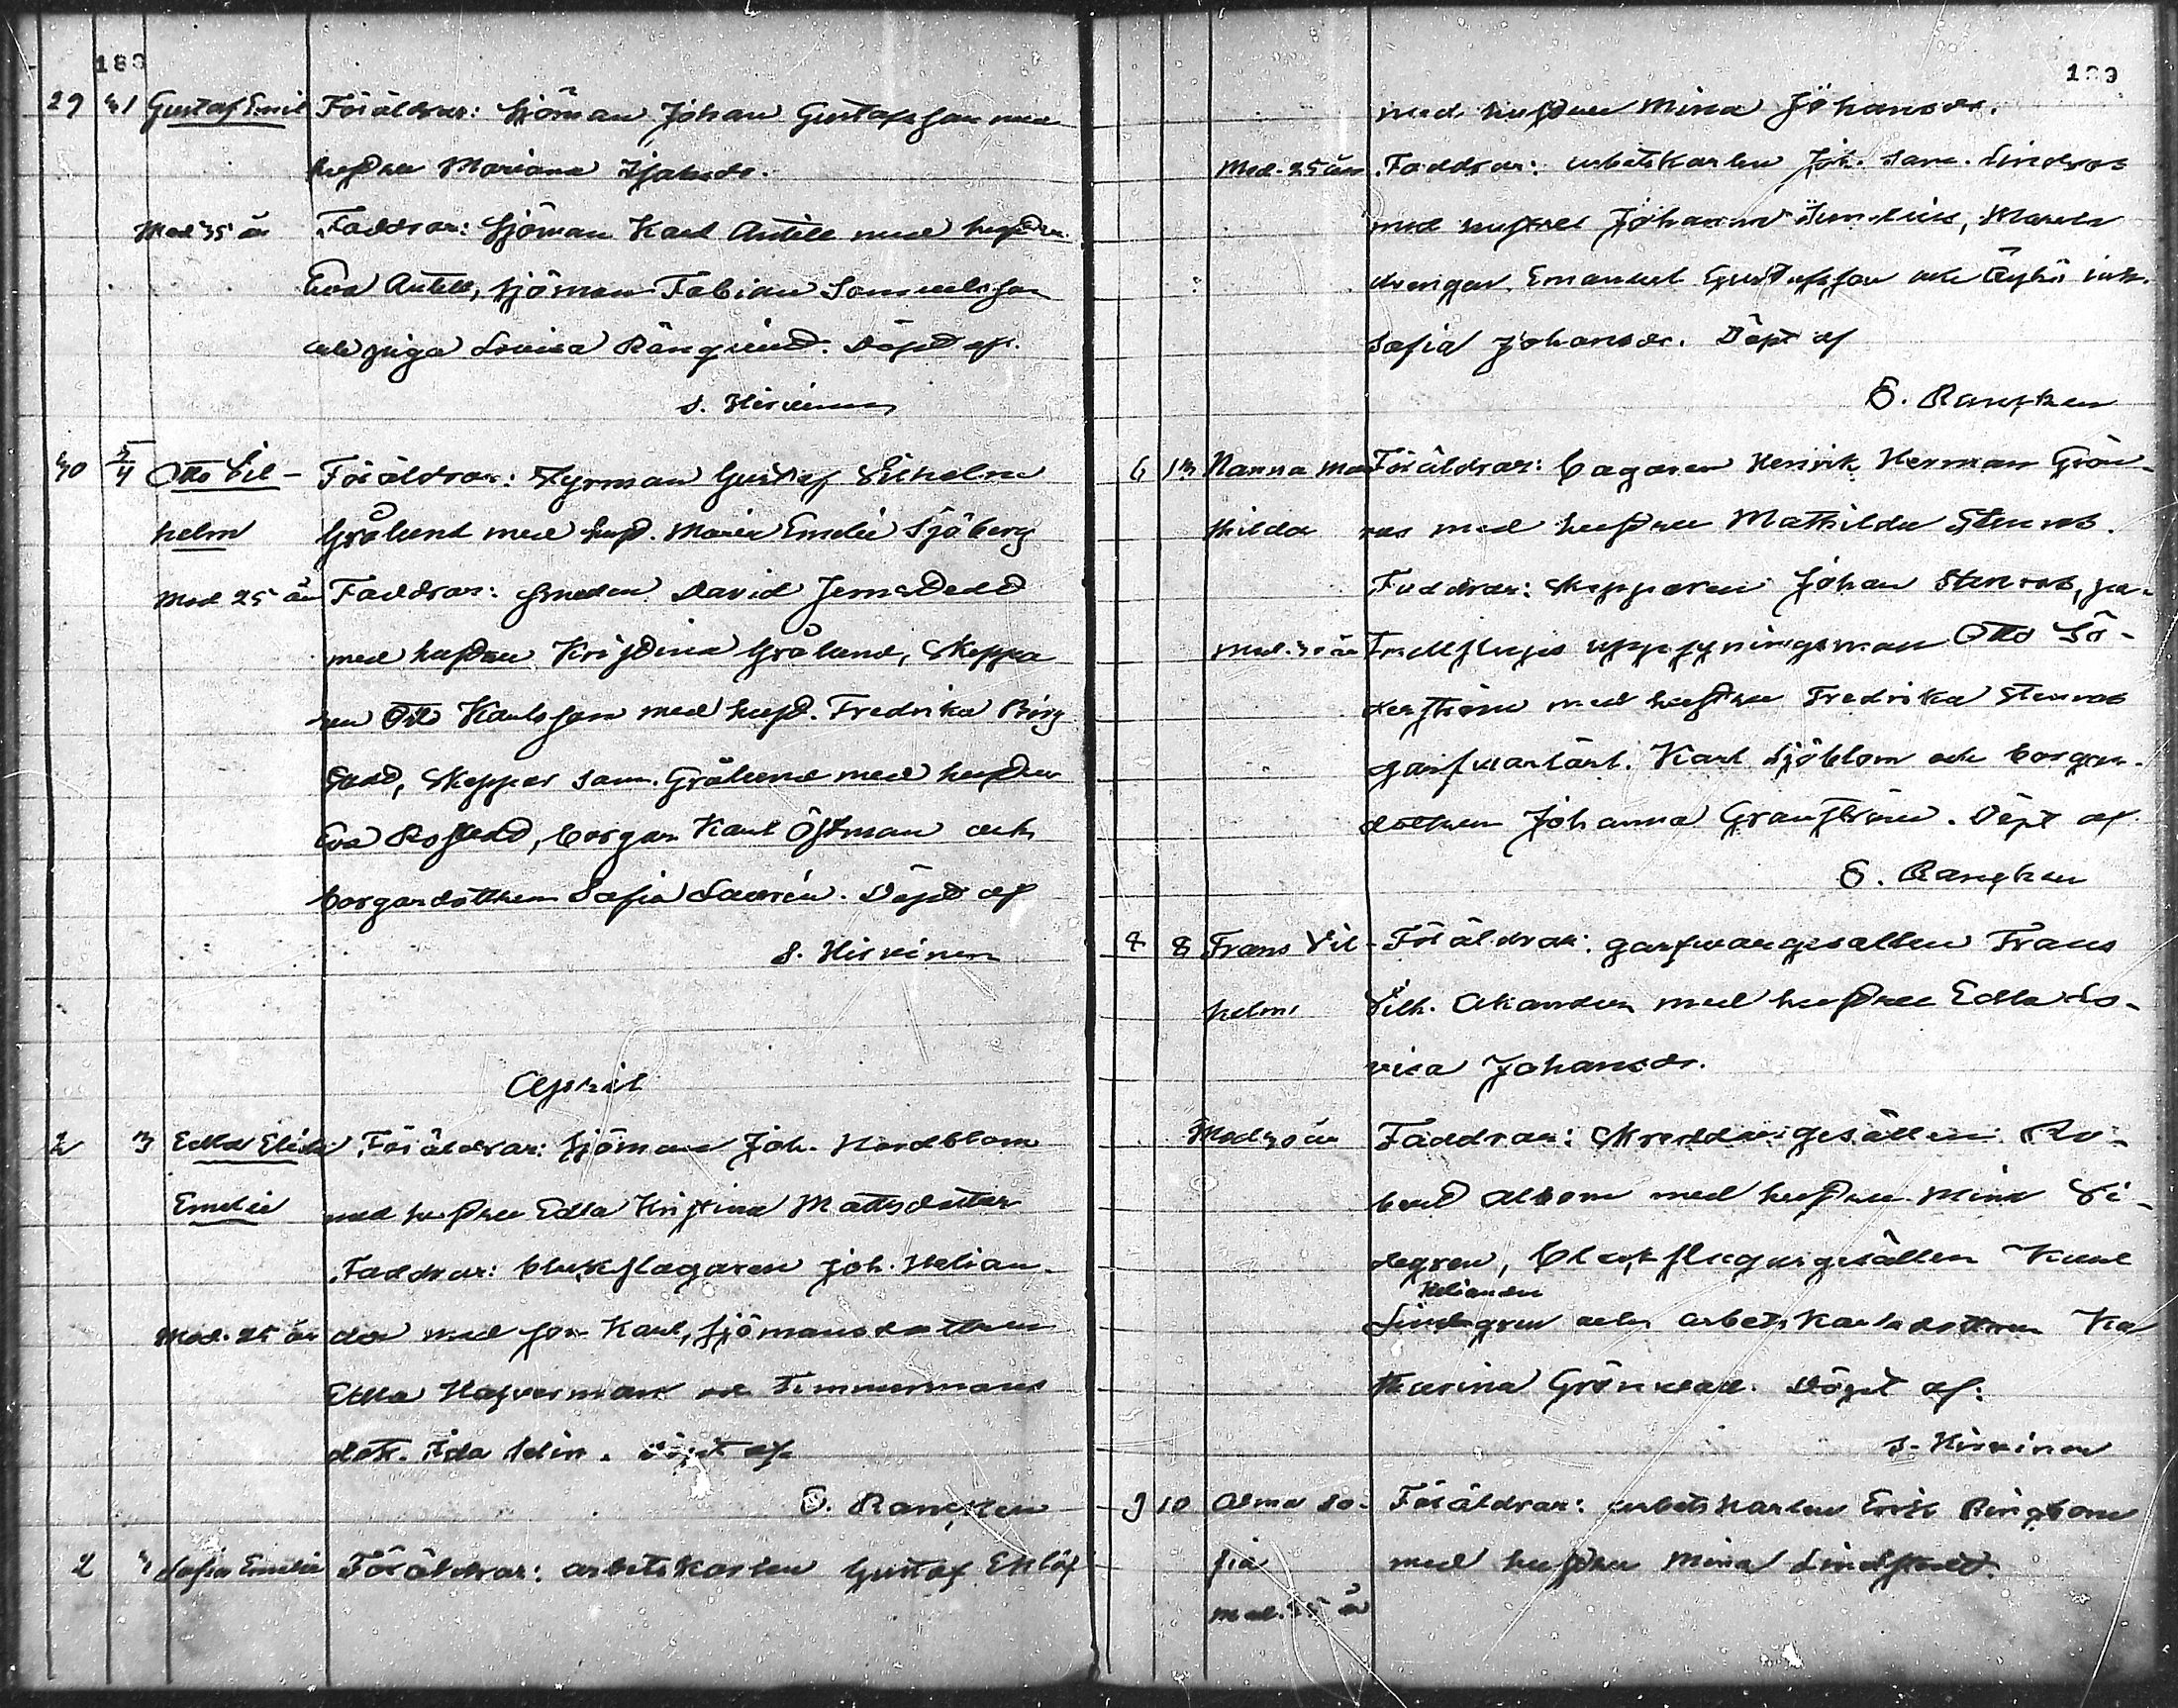 188
29 31 Gustaf Emil Föräldrar: Sjöman Johan Gustafsson med
hustru Mariana
Mod 35 år Faddrar: Sjöman Karl Antell med hustru
Eva Antell, sjöman Fabian Samuelsson
och piga Lovisa Rönqvist. Döpt af
S. Hirvinen
30 3/4 Otto Vil- Föräldrar: Styrman Gustaf Vilhelm
helm Grålund med hust. Maria Emelie Sjöberg
Mod 25 år Faddrar: smeden David Jernstedt
med hustru Kristina Grålund, Skeppa
ren Otto Karlsson med hust. Fredrika Borg
stedt, Skeppar Sam. Grålund med hustru
Eva Rostedt, borgar. Karl Östman och
borgardottern Sofia Lauren. Döpt af
S. Hirvinen
April
2 3 Edla Elida Föräldrar: Sjöman Joh. Nordblom
Emelie med hustru Edla Kristina Mattsdotter
Faddrar: bleckslagaren Joh. Helian-
Mod. 25 år der med son Karl, sjömansdottern
Edla Hafverman och Timmermans
dott. Ida Selin. Döpt af
O. Rancken
2 3 Sofia Emelie Föräldrar: arbetskarlen Gustaf Eklöf
199
med hustru Mina Johansdr.
Mod. 25 år Faddrar: arbetskarlen Joh. Sam. Lindroos
med hustru Johanna Simelius,
drengen Emanuel Gustafsson och
Sofia Johansdr. Döpt af
O. Rancken
6 13 Nanna Ma Föräldrar: bagaren Henrik Herman Grön
thilda roos med hustru Mathilda Stenroos.
Faddrar: skepparen Johan Stenroos, pa-
Mod. 30 år Trollshufs uppsyningsman Otto Sö-
derström med hustru Fredrika Stenroos
garfvarlärl. Karl Sjöblom och borgar-
dottern Johanna Granström. Döpt af
O. Rancken
8 8 Frans Vil- Föräldrar: garfvaregesällen Frans
helm Vilh. Akander med hustru Edla Lo-
visa Johansdr.
Mod 30 år Faddrar: Skreddaregesällen Ro-
bert Albom med hustru Mina Vi-
degren, bleckslagaregesällen Karl
Heliander
Lindgren och arbetskarlsdottern Ka
tharina Grönvall. Döpt af:
S. Hirvinen
9 10 Alma So- Föräldrar: arbetskarlen Erik Ringbom
fia med hustru Mina Lindstedt.
Mod. 35 år